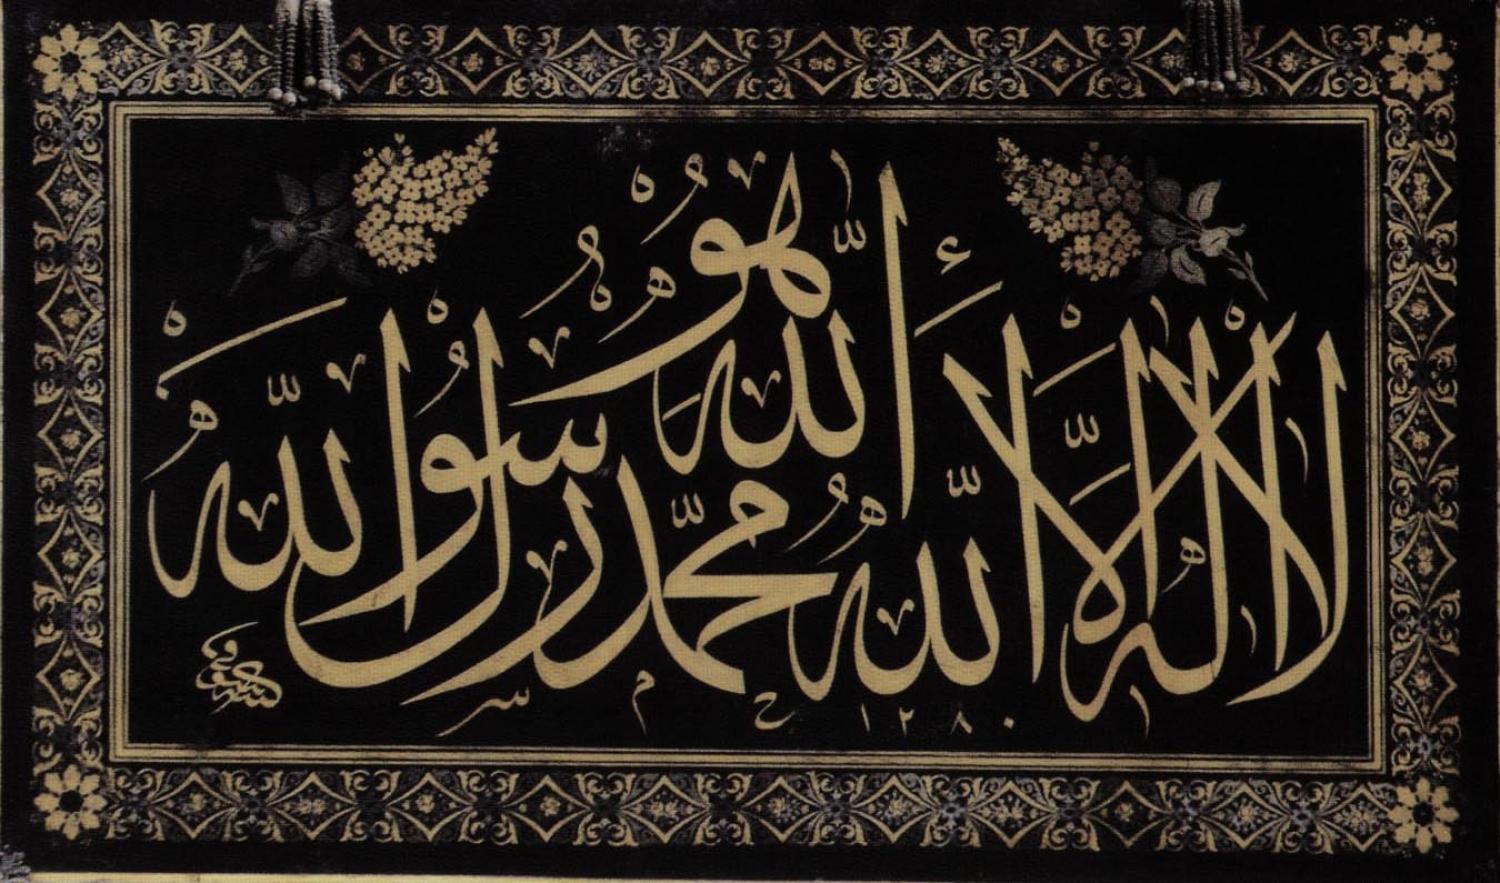 الله هو
لا اله الا الله محمد رسول الله
١٢٨٠